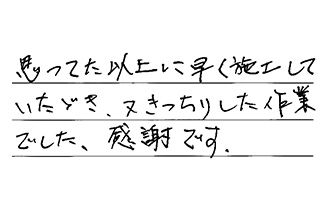 思ってた以上に早く施工して
いただき、又きっちりした作業
でした、感謝です.